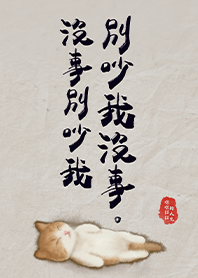 別吵我沒事。
沒事別吵我